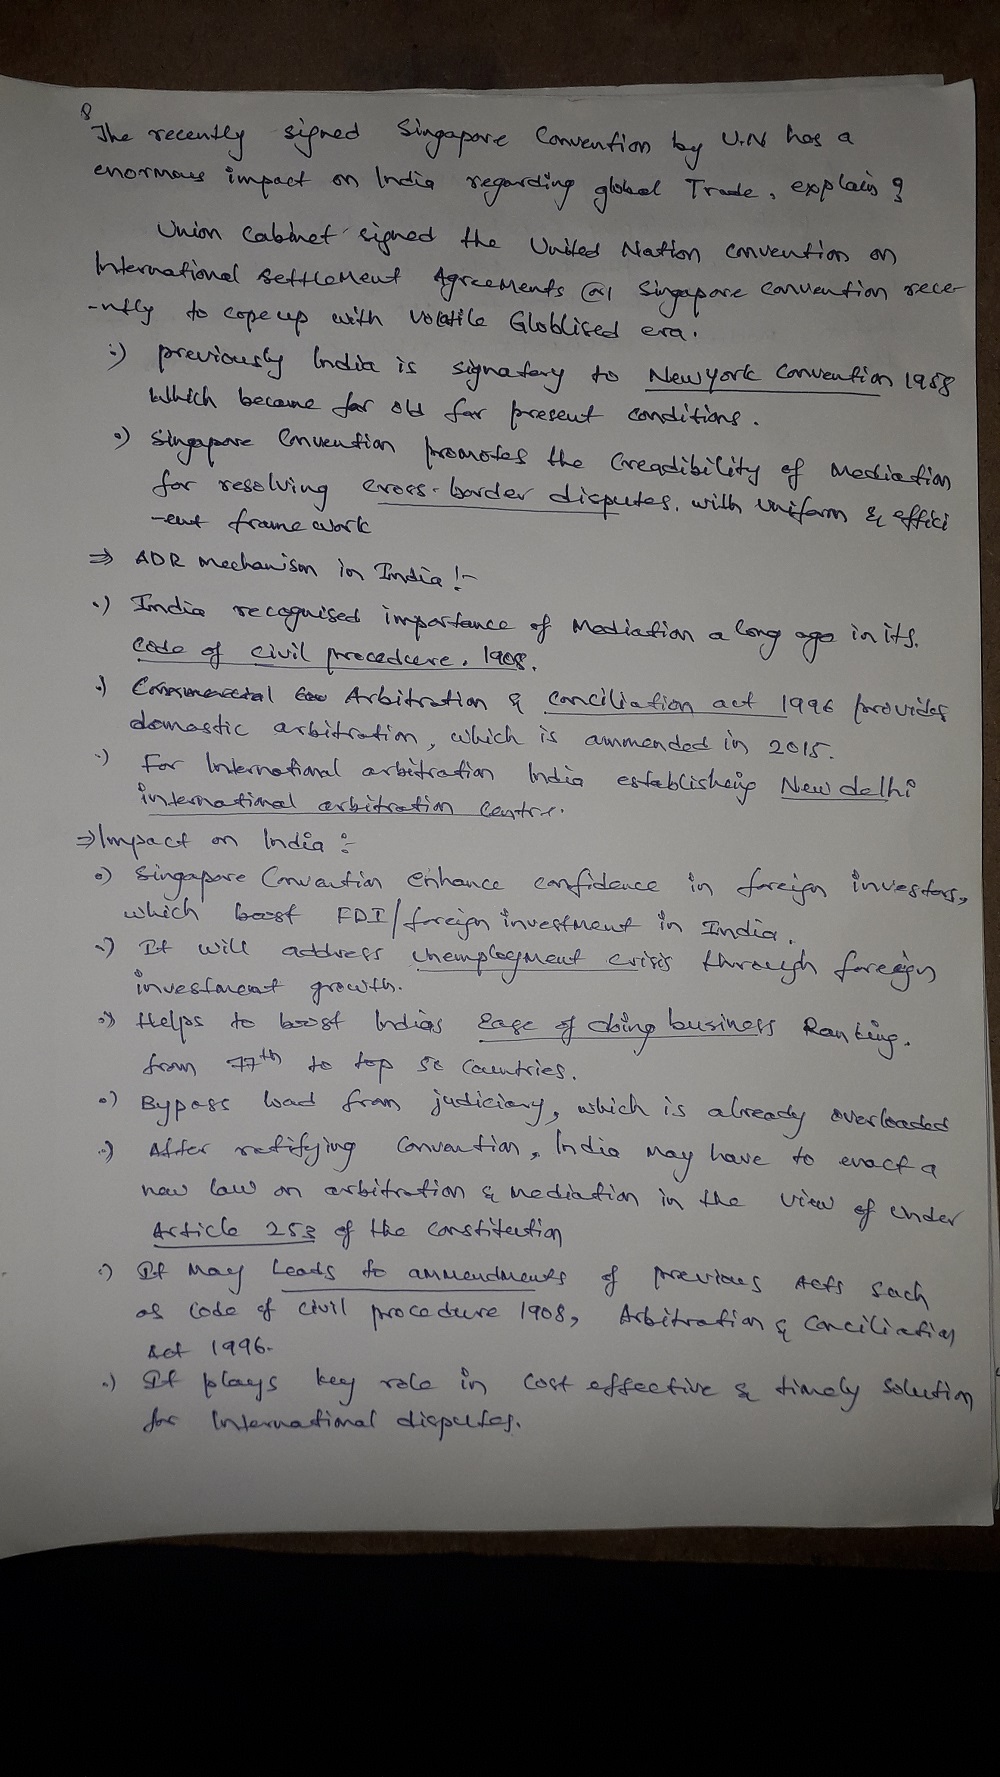 Q
The recently signed Singapore Convention by U.N has a
enormous impact on India regarding global Trade, explain?
Union Cabinet signed the United Nation convention on
International Settlement Agreements (or) Singapore Convention rece-
-ntly to copeup with Volatile Globlised era.
previously India is signatory to Newyork Convention 1958
Which became far old for present conditions.
Singapore Convention promotes the Creadibility of Mediation
for resolving cross-border disputes, with uniform & effici
-ent frame work
⇒ ADR mechanism in India :-
India recognised importance of Mediation a long ago in its.
code of civil procedcure. 1908.
Commercial Arbitration & Conciliation act 1996 provides
domastic arbitration, which is ammended in 2015.
For International arbitration India establishing New delhi
international arbitration centre.
⇒ Impact on India :-
Singapore Convention enhance confidence in foreign investors,
which boost FDI/foreign investment in India.
It will address unemployment crisis through foreign
investment growth.
Helps to boost Indias Ease of doing business Ranking.
from 77th to top 50 Countries.
Bypass load from judiciary, which is already overloaded
After ratifying Convention, India may have to enact a
new law on arbitration & mediation in the view of under
Article 253 of the Constitution
It May Leads to ammendments of previous Acts such
as Code of Civil procedure 1908, Arbitration & Conciliation
Act 1996.
It plays key role in Cost effective & timely solution
for International disputes.